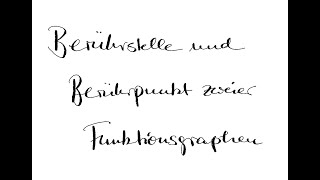 Berührstelle und
Berührpunkt zweier
Funktionsgraphen